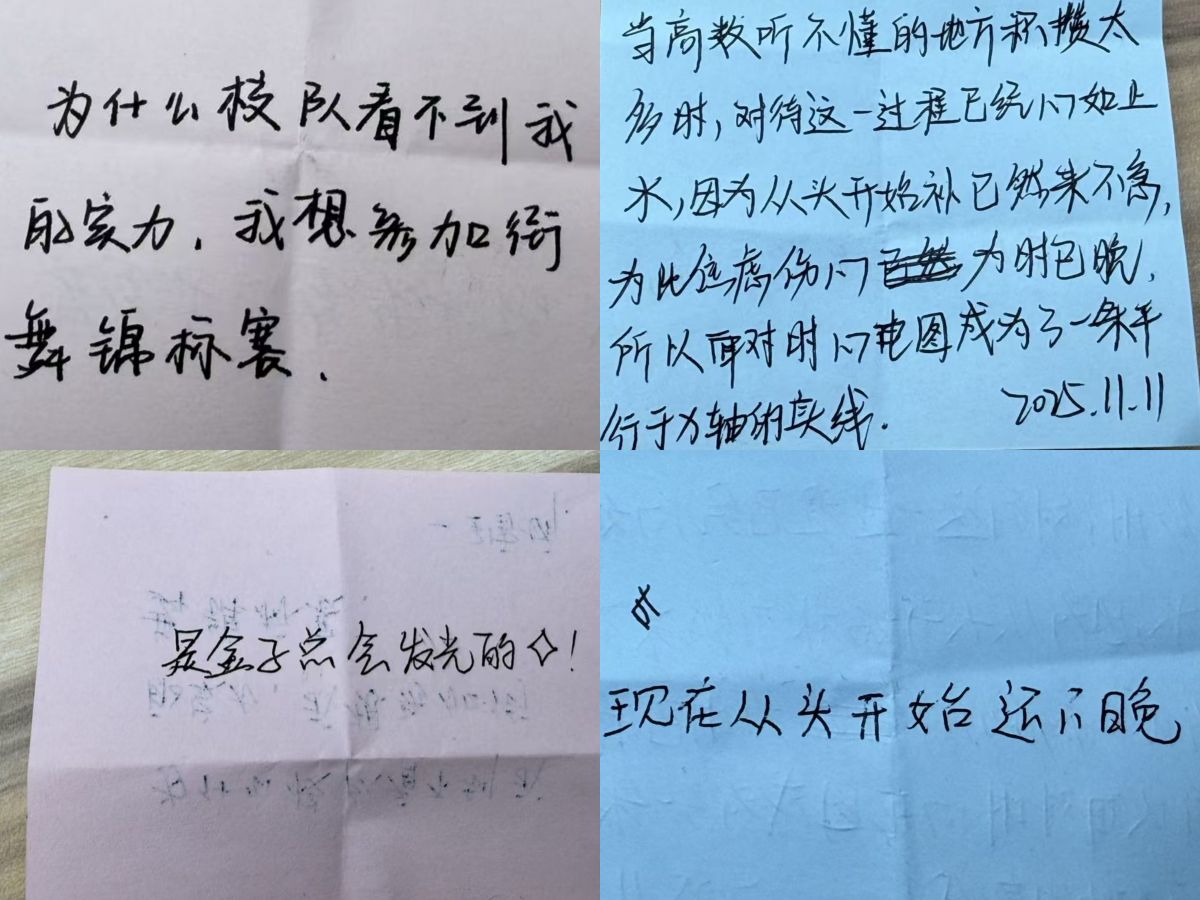 为什么校队看不到我
的实力，我想参加街
舞锦标赛.
当高数听不懂的地方积攒太
多时，对待这一过程已经心如止
水，因为从头开始补已然来不急，
为此焦虑伤心为时已晚，
所以面对时心电图成为了一条平
行于x轴的直线.
2025.11.11
是金子总会发光的！
现在从头开始还不晚